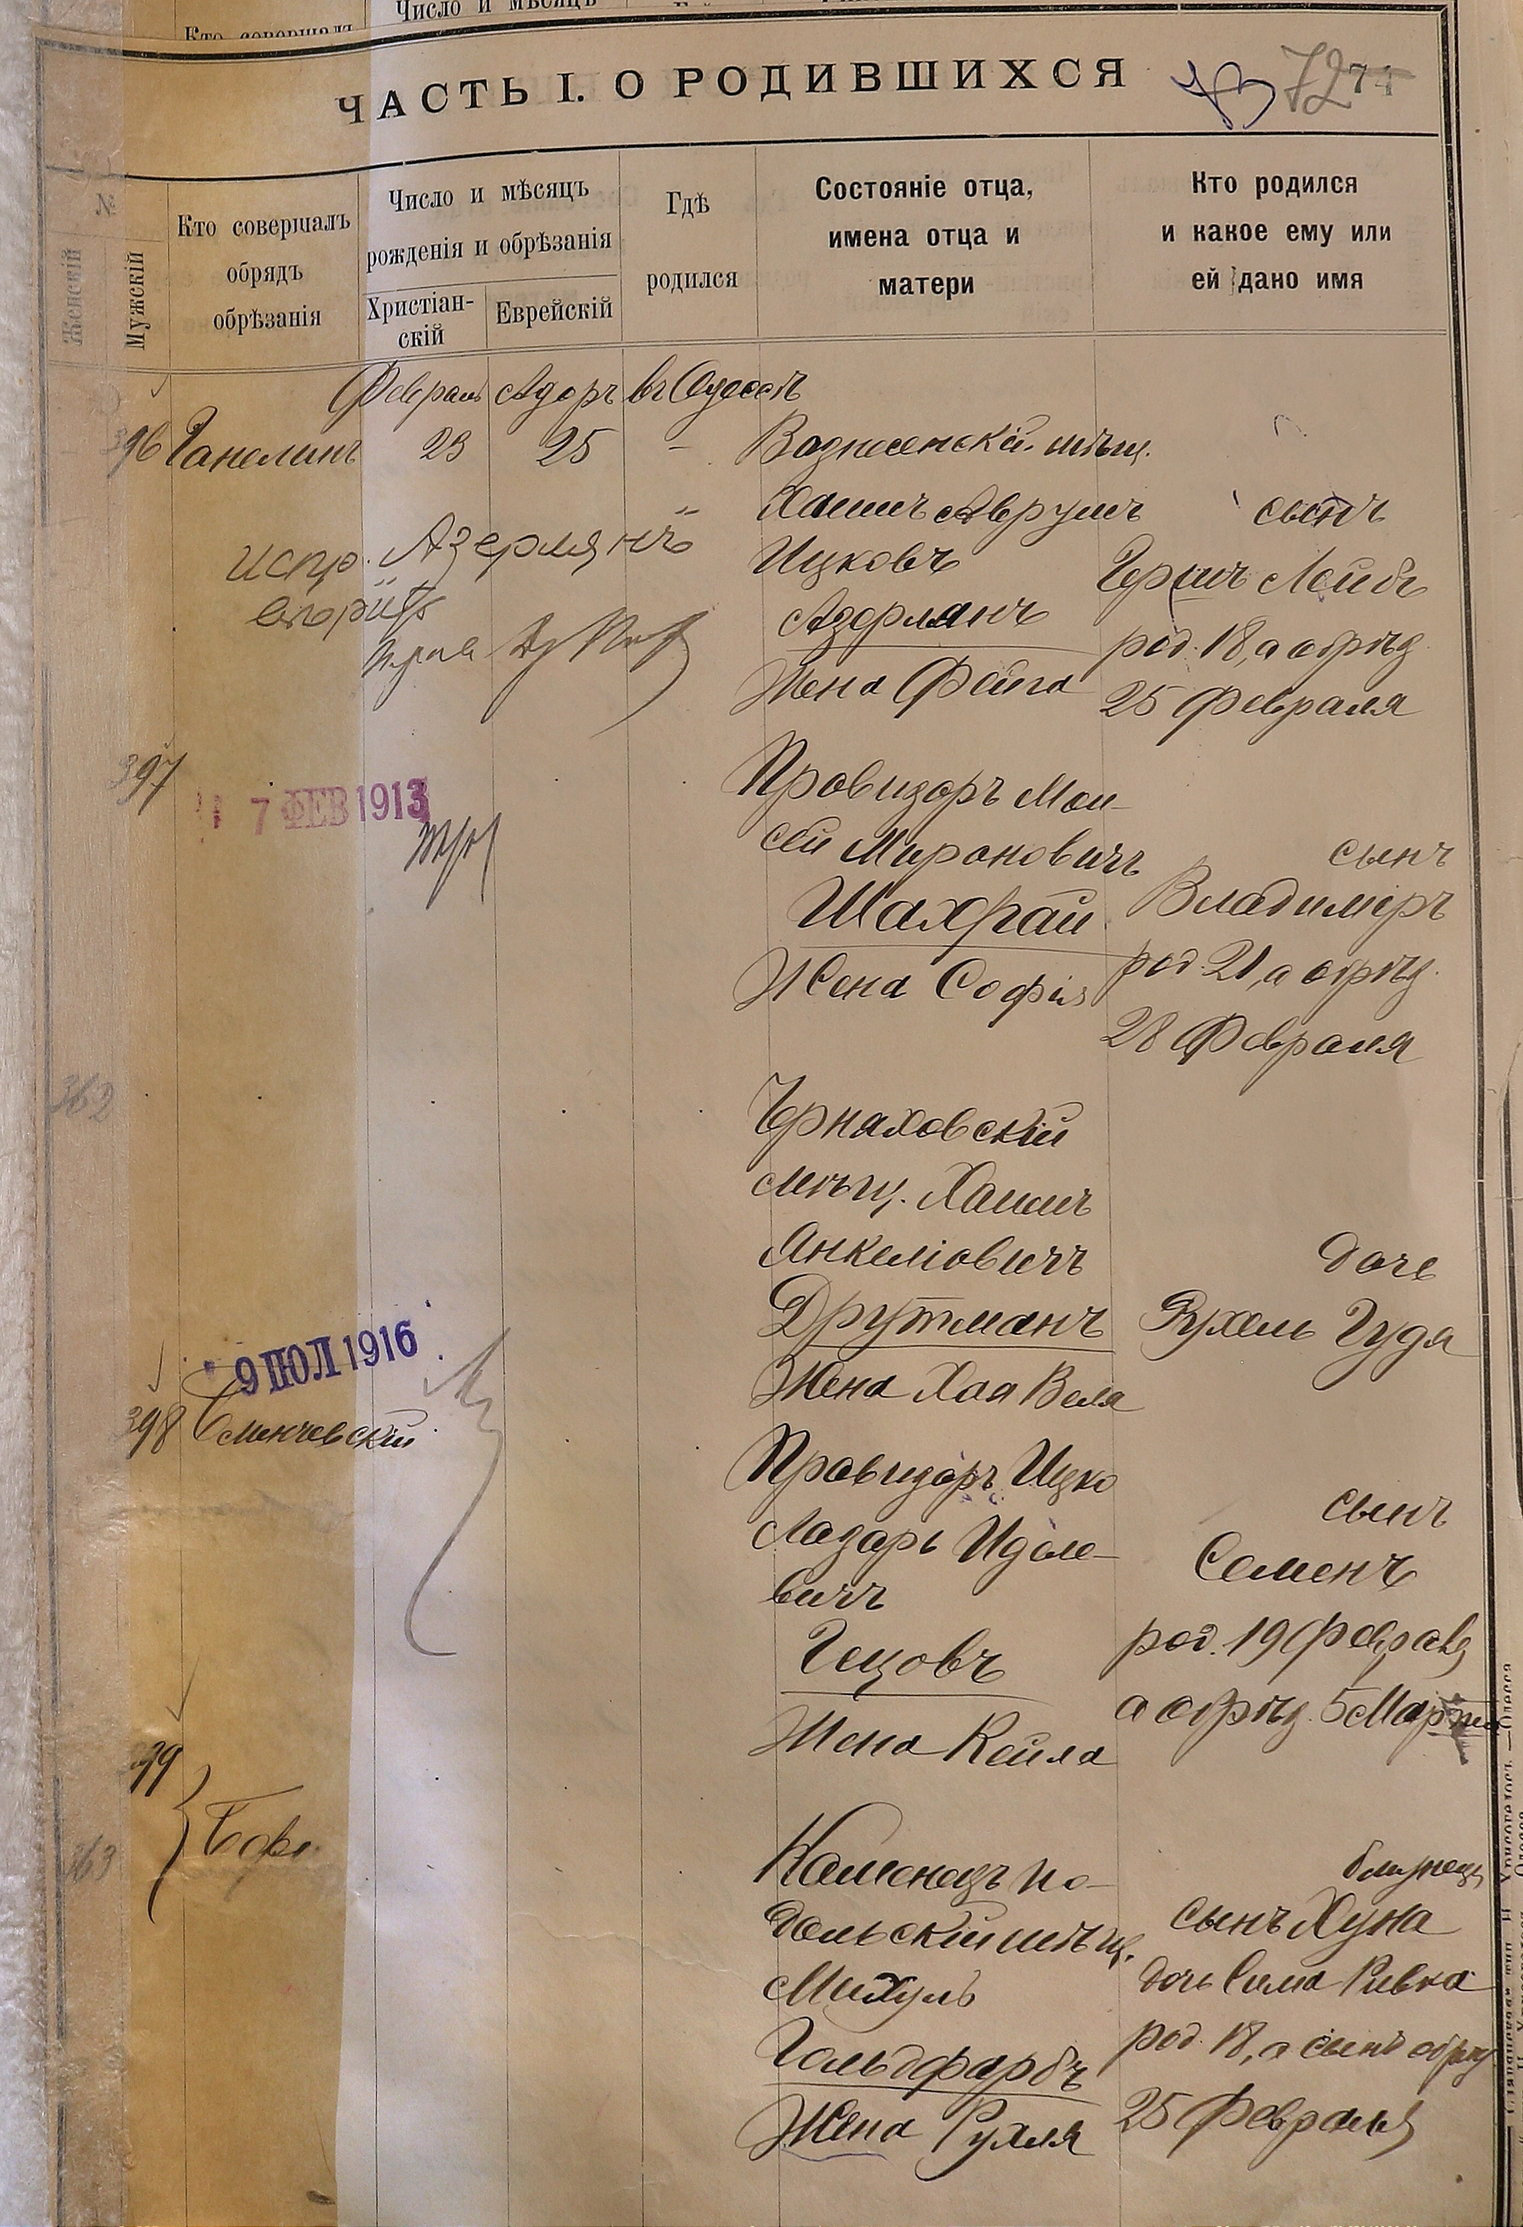 Число и мѣсяцъ
Кто совершалъ
ЧАСТЬ I. О РОДИВШИХСЯ
73 72 74
№
Женскій
Мужскій
Кто совершалъ
обрядъ
обрѣзанія
Число и мѣсяцъ
рожденія и обрѣзанія
Христіан-
скій
Еврейскій
Гдѣ
родился
Состояніе отца,
имена отца и
матери
Кто родился
и какое ему или
ей дано имя
Февраль Адоръ въ Одессѣ
396 Ганелинъ 23 25 - Вознесенскій мѣщ.
Хаимъ Аврумъ
Ицковъ
Азерлянъ
Жена Фейга
сынъ
Герш Лейбъ
род. 18, а обрѣз.
25 Февраля
испр. Азерлянъ
вѣрить
397
7 ФЕВ 1913
Провизоръ Мои-
сей Мироновичъ
Шахрай
Жена Софія
сынъ
Владиміръ
род. 21, а обрѣз.
28 Февраля
362
Черняховскій
мѣщ. Хаимъ
Янкеліовичъ
Друтманъ
Жена Хая Веля
дочь
Рухель Гудя
9 ІЮЛ 1916
398 Сменчевскій
Провизоръ Ицко
Лазарь Идоле-
вичъ
Гецовъ
Жена Кейла
сынъ
Семенъ
род. 19 Февраля
а обрѣз. 5 Марта
399
363
Каменецъ По-
дольскій мѣщ.
Михуль
Гольдфарбъ
Жена Рухля
близнецы
сынъ Хуна
дочь Сима Ривка
род. 18, а сынъ обрѣз
25 Февраля